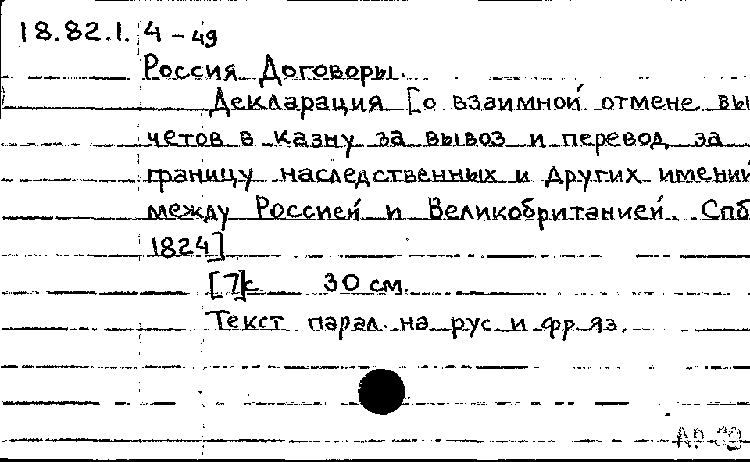 18.82.1. 4-49
Россия. Договоры.
Декларация [о взаимной отмене вы
четов в казну за вывоз и перевод за
границу наследственных и других имений
между Россией и Великобританией. Спб
1824]
[7]с 30 см.
Текст парал. на рус и фр. яз.